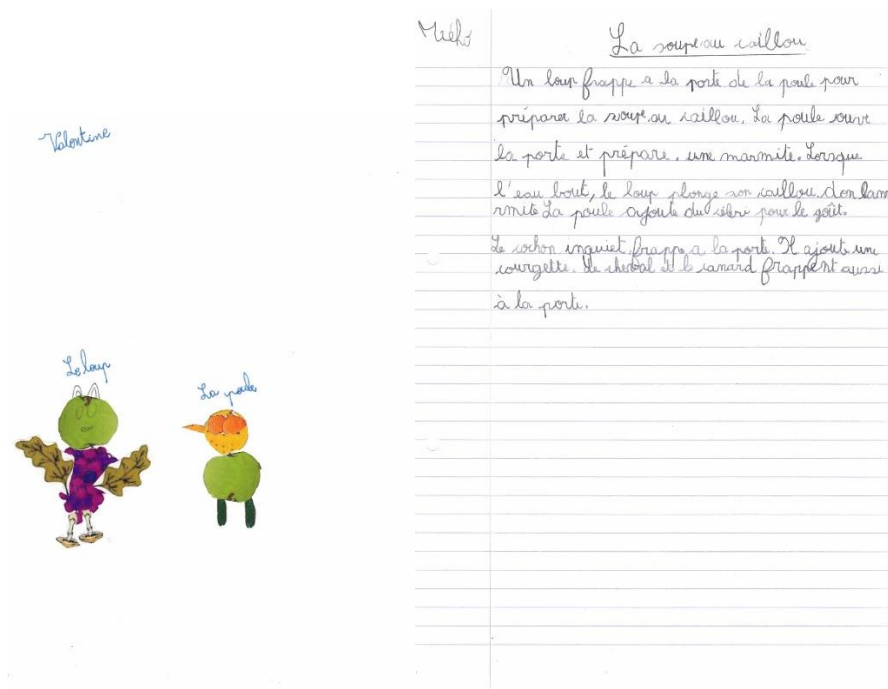 Valentine
Le loup
La poule
La soupe au caillou
Un loup frappe a la porte de la poule pour
préparer la soupe au caillou. La poule ouvre
la porte et prépare. une marmite. Lorsque
l'eau bout, le loup plonge son caillou dan lam
rmite La poule ajoute du célri pour le goût.
Le cochon inquiet frappe a la porte. Il ajoute une
courgette. Le cheval et le canard frappent aussi
à la porte.